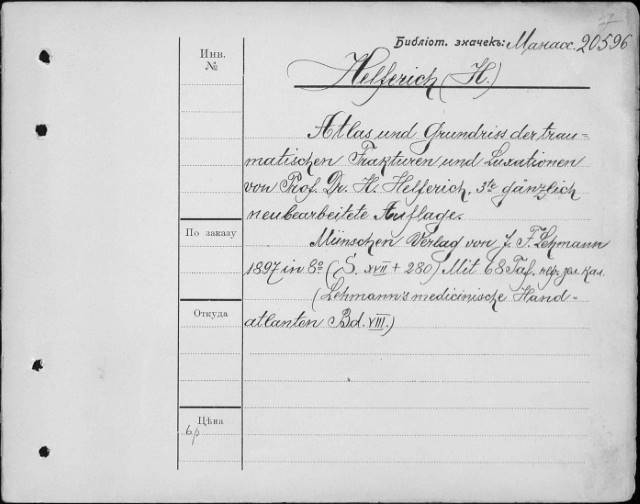 Библіот. значекъ: Манасс. 20596
Инв. №
Helferich (H.)
Atlas und Grundriss der trau-
matischen Frakturen und Luxationen
von Prof. Dr. H. Helferich. 3te gänzlich
neubearbeitete Auflage.
По заказу
München Verlag von J. F. Lehmann
1897 in 8º (S. XVII + 280) Mit 68 Taf.
(Lehmann's medicinische Hand-
Откуда
atlanten Bd. VIII.)
Цѣна
6р